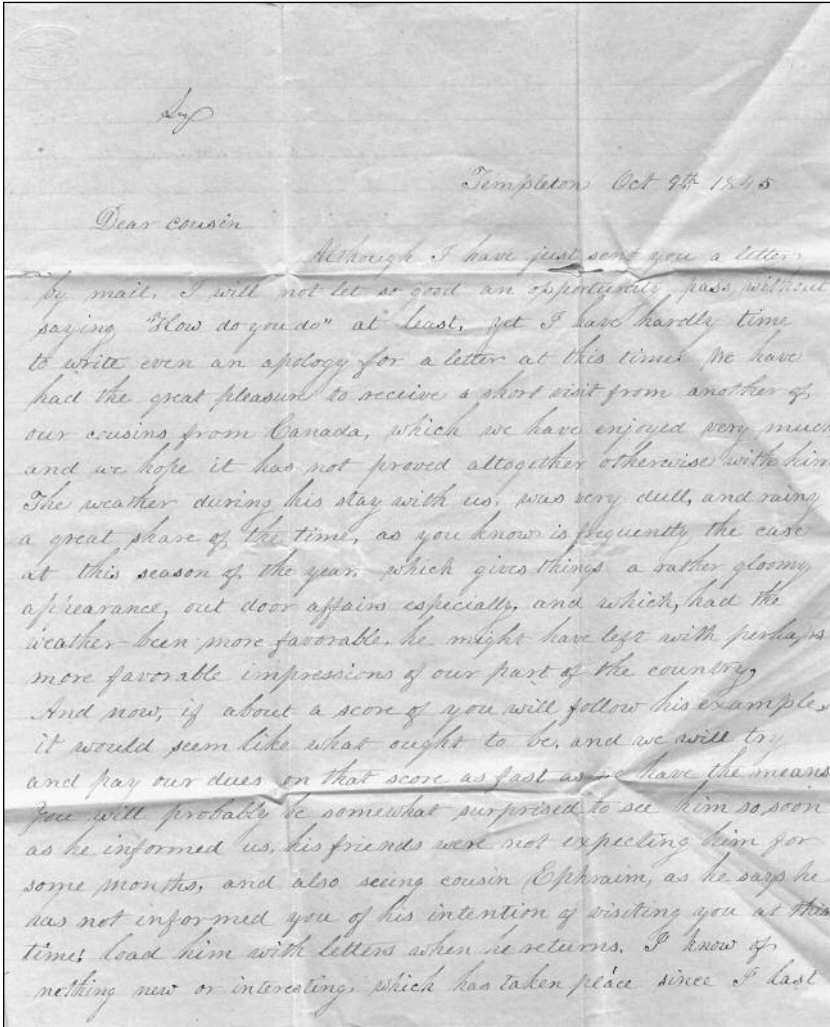 Templeton Oct 9th 1845
Dear cousin
Although I have just sent you a letter
by mail, I will not let so good an opportunity pass without
saying "How do you do" at least, yet I have hardly time
to write even an apology for a letter at this time. We have
had the great pleasure to receive a short visit from another of
our cousins from Canada, which we have enjoyed very much
and we hope it has not proved altogether otherwise with him
The weather during his stay with us, was very dull, and rainy
a great share of the time, as you know is frequently the case
at this season of the year, which gives things a rather gloomy
appearance, out door affairs especially, and which, had the
weather been more favorable, he might have left with perhaps
more favorable impressions of our part of the country,
And now, if about a score of you will follow his example,
it would seem like what ought to be, and we will try
and pay our dues on that score as fast as we have the means
You will probably be somewhat surprised to see him so soon
as he informed us, his friends were not expecting him for
some months, and also seeing cousin Ephraim, as he says he
has not informed you of his intention of visiting you at this
time; load him with letters when he returns. I know of
nothing new or interesting which has taken place since I last